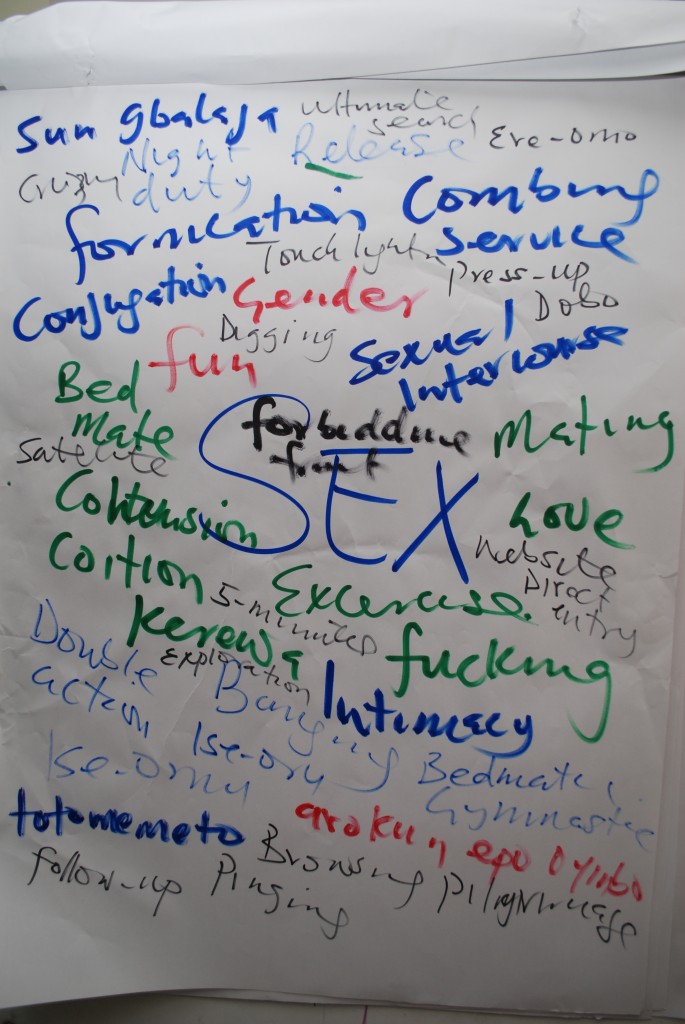 Sun gbalaja
ultimate
search
Ere-omo
Night
duty
Release
fornication
Combing
service
Touch light
Press-up
Dobo
Conjugation
Gender
Digging
fun
Sexual
Intercourse
Bed
mate
Satelite
forbidden
fruit
SEX
Mating
Love
Coition
Website
Direct
entry
5-minutes
Excercise.
Kerewa
exploration
fucking
Double
action
Banging
Intimacy
Ise-Omu
Ise-ory
Bedmatic
Gymnastic
totomemeto
arokun epo oyinbo
follow-up
Pinging
Browsing
pilgrimage